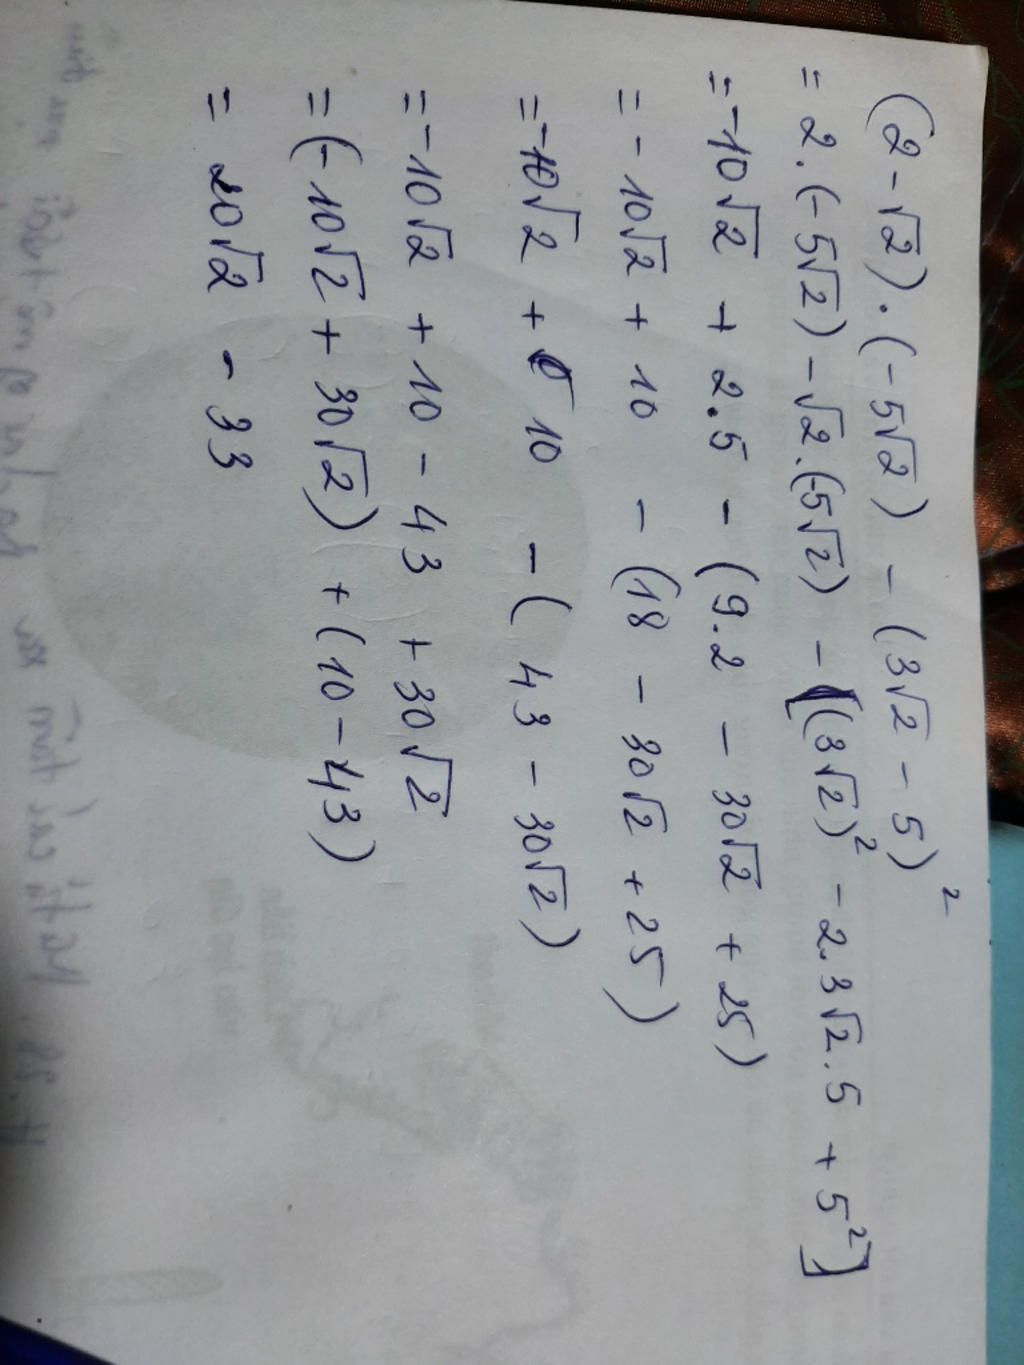 (2-√2).(-5√2) - (3√2 - 5)²
= 2.(-5√2) - √2.(-5√2) - [(3√2)² - 2.3√2.5 + 5²]
= -10√2 + 2.5 - (9.2 - 30√2 + 25)
= -10√2 + 10 - (18 - 30√2 + 25)
= -10√2 + 10 - (43 - 30√2)
= -10√2 + 10 - 43 + 30√2
= (-10√2 + 30√2) + (10 - 43)
= 20√2 - 33